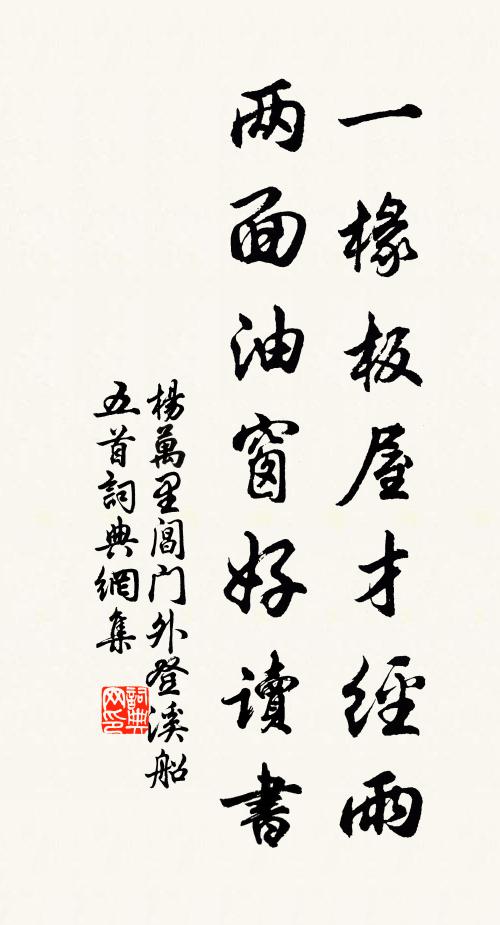 一椽板屋才經雨
两面油窗好讀書
楊萬里閶门外登溪船
五首詞典網集
詞典網印